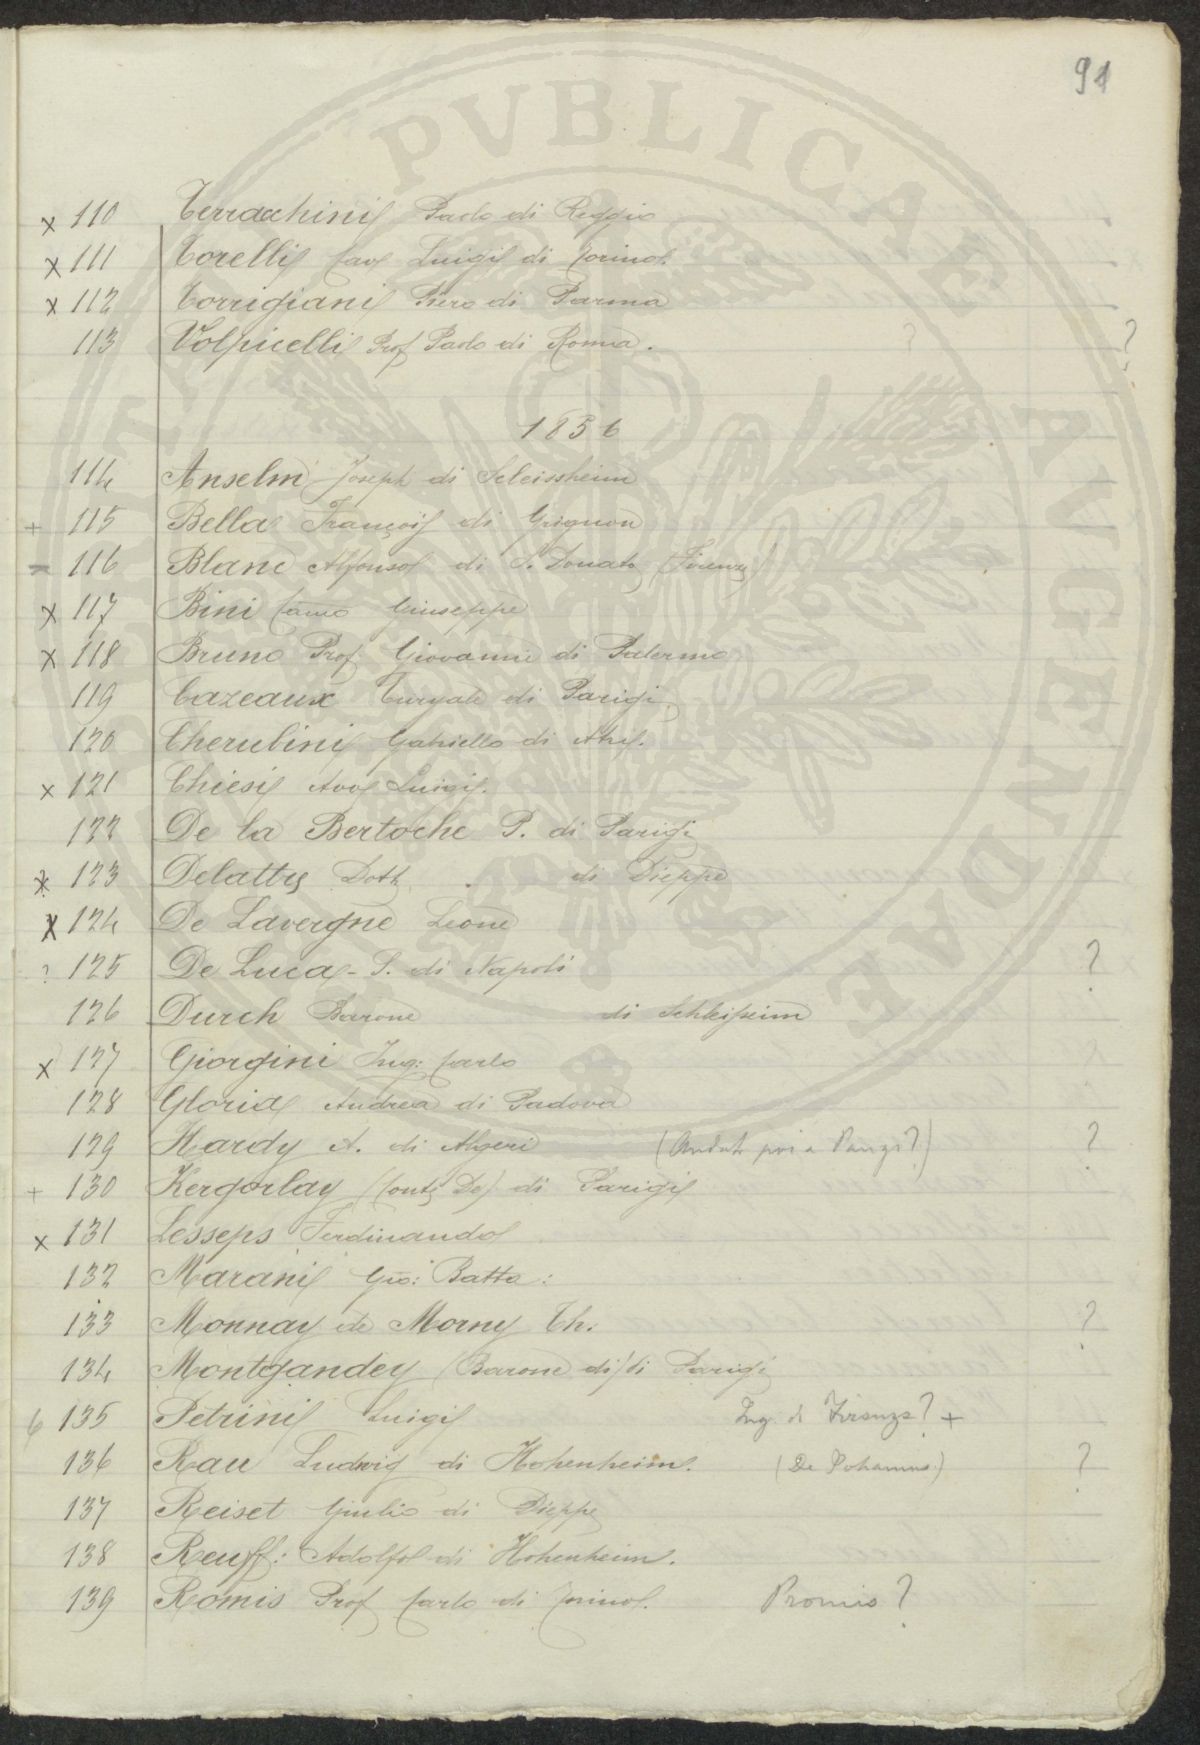 91
x 110 Terrachini Paolo di Reggio
x 111 Torelli Cav Luigi di Torino.
x 112 Torrigiani Piero di Parma
113 Volpicelli Prof Paolo di Roma. ? ?
1856
114 Anselm Joseph di Scleissheim
+ 115 Bella François di Grignon
116 Blanc Alfonso di S. Donato (Firenze)
x 117 Bini Giuseppe
x 118 Bruno Prof. Giovanni di Palermo
119 Cazeaux Euryale di Parigi
120 Cherubini Gabriello di Atri.
x 121 Chiesi Avv Luigi.
122 De la Bertoche P. di Parigi
x 123 Delattre Dott. di Dieppe
x 124 De Lavergne Leone
? 125 De Luca - S. di Napoli ?
126 Durch Barone di Schleisheim
x 127 Giorgini Ing: Carlo
128 Gloria Andrea di Padova
129 Hardy A. di Algeri (Andato poi a Parigi?) ?
+ 130 Kergorlay (Conte De) di Parigi
x 131 Lesseps Ferdinando
132 Marani Gio: Batta:
133 Monnay de Morny Th. ?
134 Montgandey (Barone di) di Parigi
135 Petrini Luigi Ing. di Firenze? +
136 Rau Ludwig di Hohenheim. ?
137 Reiset Giulio di Dieppe
138 Reuff: Adolfo di Hohenheim.
139 Romis Prof Carlo di Torino. Promis?
PUBLICAE AVGENDAE